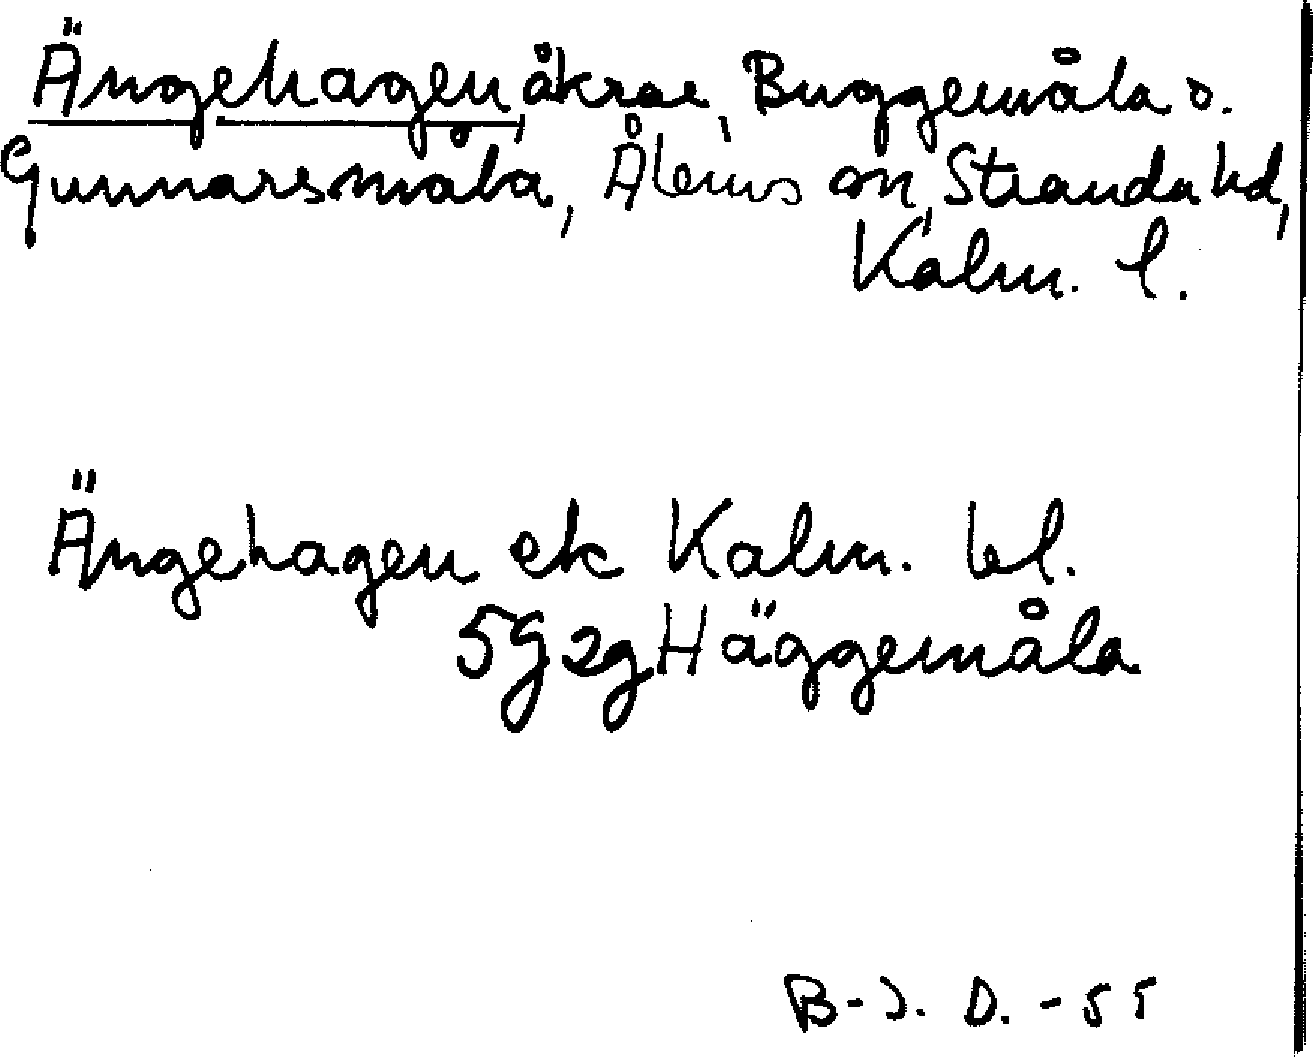 Ängehagen, åkrar, Buggemåla o.
Gunnarsmåla, Ålems sn, Stranda hd,
Kalm. l.
Ängehagen ek Kalm. bl.
5g2g Häggemåla
B-J. D. -55